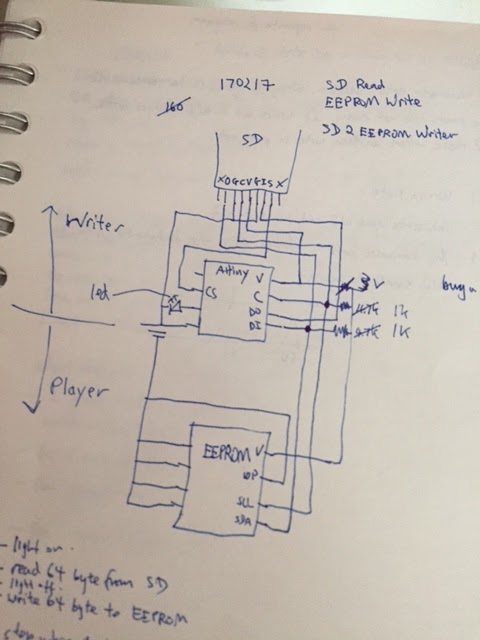 170217
SD Read
EEPROM Write
SD 2 EEPROM Writer
160
SD
XOGCVGISX
Writer
Attiny V
CS
C
DO
DI
3V
led
47k 1k
47k 1K
Player
EEPROM V
WP
SCL
SDA
- light on.
- read 64 byte from SD
- light off.
- write 64 byte to EEPROM